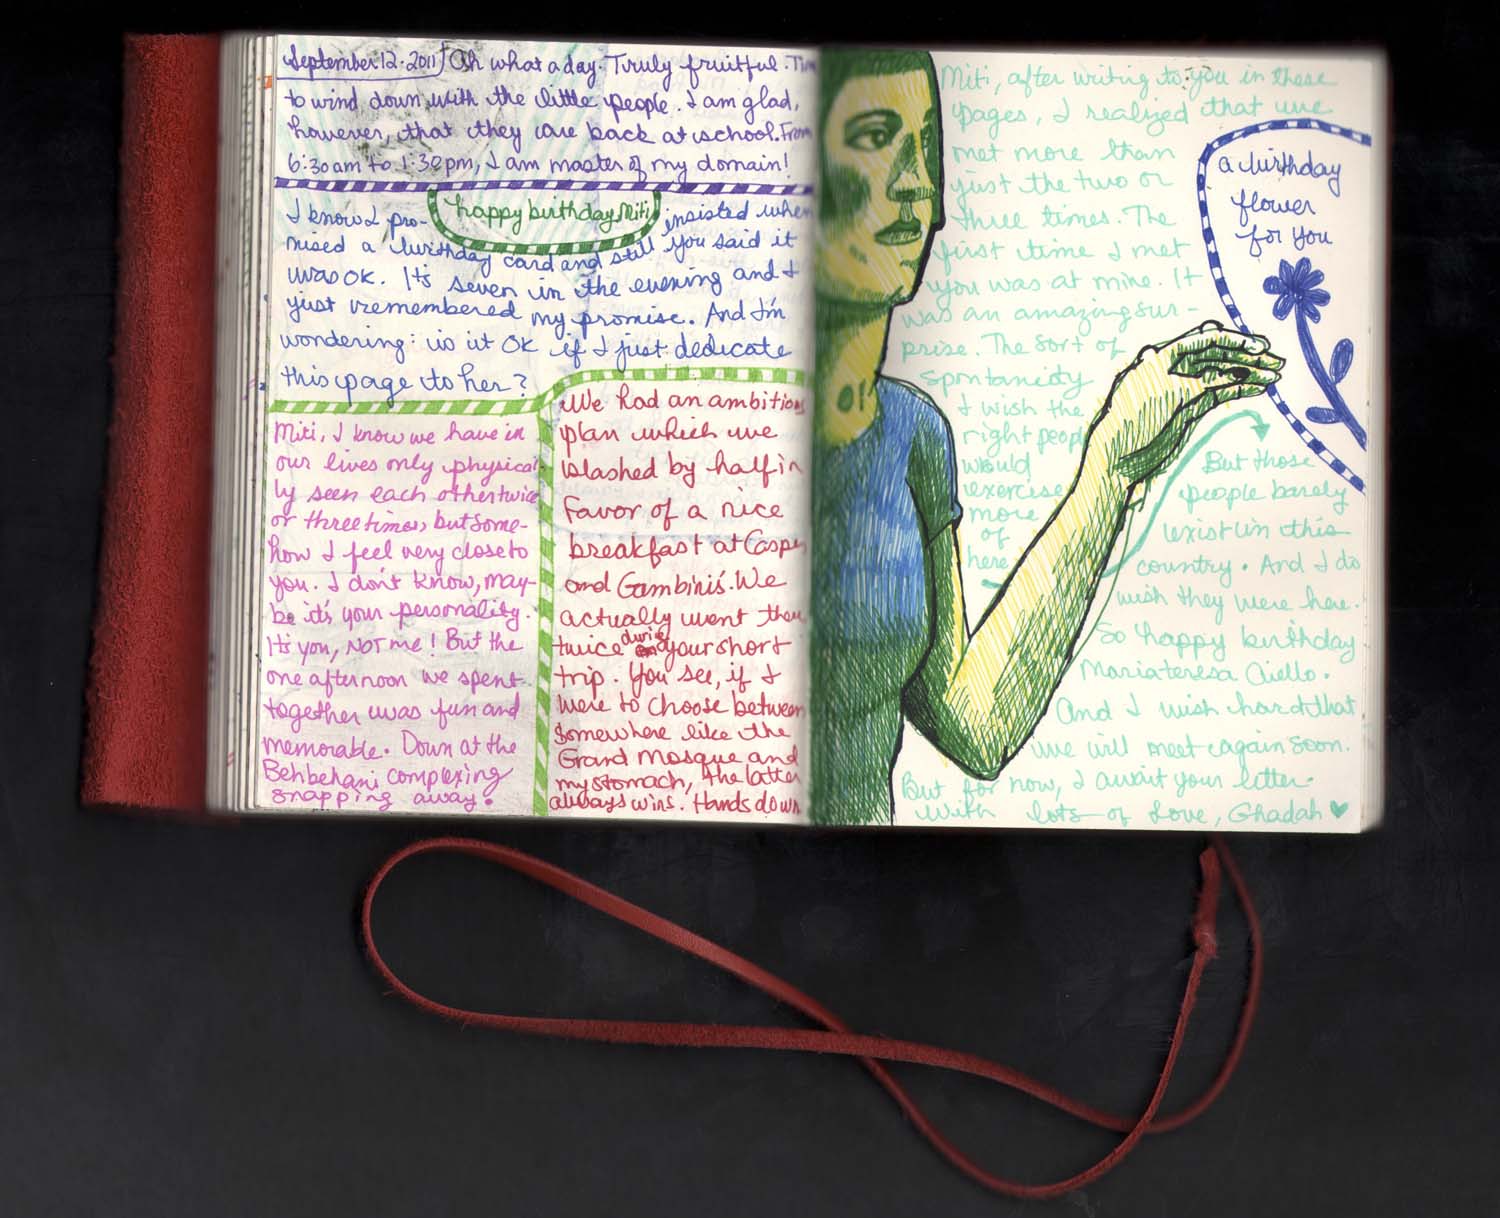 September 12. 2011 Oh what a day. Truly fruitful. Time
to wind down with the little people. I am glad,
however, that they are back at school. From
6:30am to 1:30pm, I am master of my domain!
happy birthday Miti
I know I pro-
mised a birthday card and still you said it
insisted when
was OK. It's seven in the evening and I
just remembered my promise. And I'm
wondering: is it OK if I just dedicate
this page to her?
Miti, I know we have in
our lives only physical-
ly seen each other twice
or three times, but some-
how I feel very close to
you. I don't know, may-
be it's your personality.
It's you, NOT me! But the
one afternoon we spent
together was fun and
memorable. Down at the
Behbehani complexing
snapping away.
We had an ambitious
plan which we
slashed by half in
favor of a nice
breakfast at Casper
and Gambinis. We
actually went there
twice during your short
trip. You see, if I
were to choose between
somewhere like the
Grand Mosque and
my stomach, the latter
always wins. Hands down
Miti, after writing to you in these
pages, I realized that we
met more than
just the two or
three times. The
first time I met
you was at mine. It
was an amazing sur-
prise. The sort of
spontaneity
I wish the
right people
would
exercise
more
of
here.
a birthday
flower
for you
But those
people barely
exist in this
country. And I do
wish they were here.
So happy birthday
Mariateresa Aiello.
And I wish hard that
we will meet again soon.
But for now, I await your letter.
With lots of love, Ghadah ♥